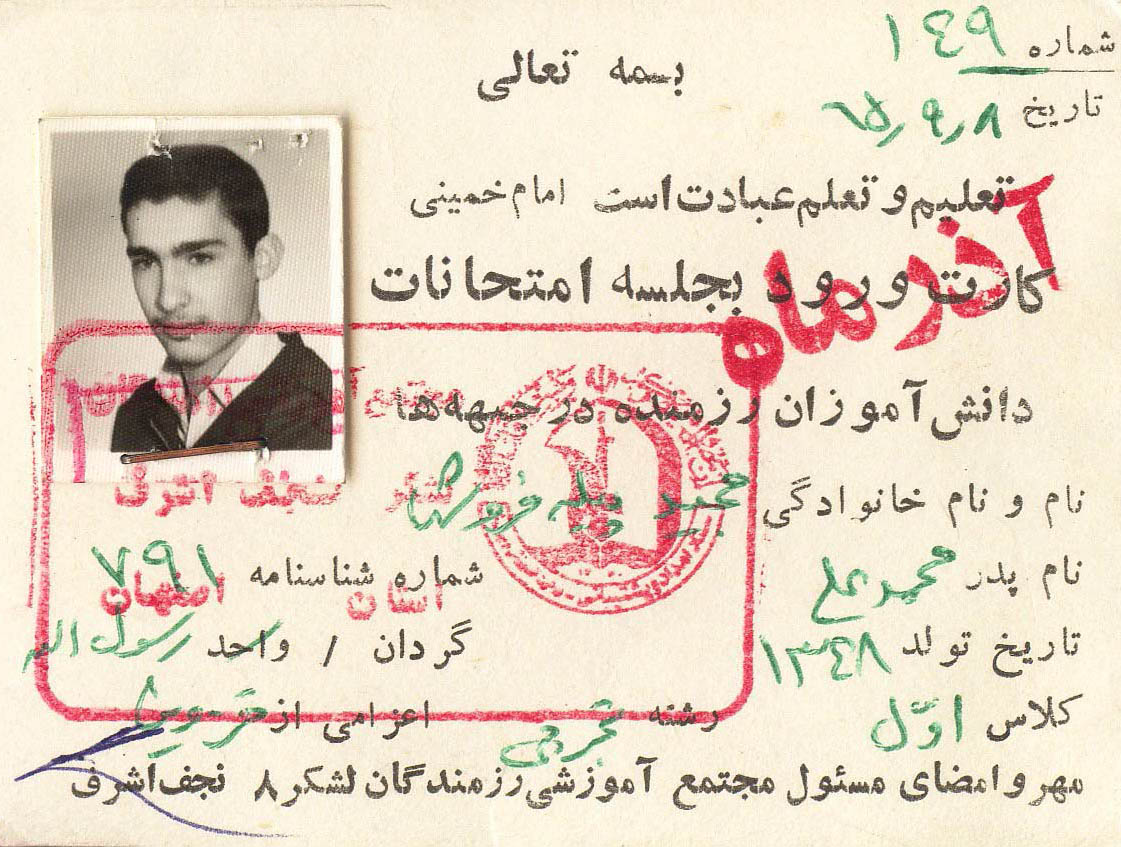 شماره ۱۴۹
بسمه تعالی
تاریخ ۶۵٫۹٫۸
تعلیم و تعلم عبادت است امام خمینی
کارت ورود بجلسه امتحانات
آذر ماه
دانش آموزان رزمنده در جبهه ها
نام و نام خانوادگی مجید پیله فروشها
لشگر نجف اشرف
نام پدر محمد علی شماره شناسنامه ۷۹۱
استان اصفهان
تاریخ تولد ۱۳۴۸ گردان / واحد رسول الله
کلاس اوّل رشته تجربی اعزامی از
مهر و امضای مسئول مجتمع آموزشی رزمندگان لشکر ۸ نجف اشرف